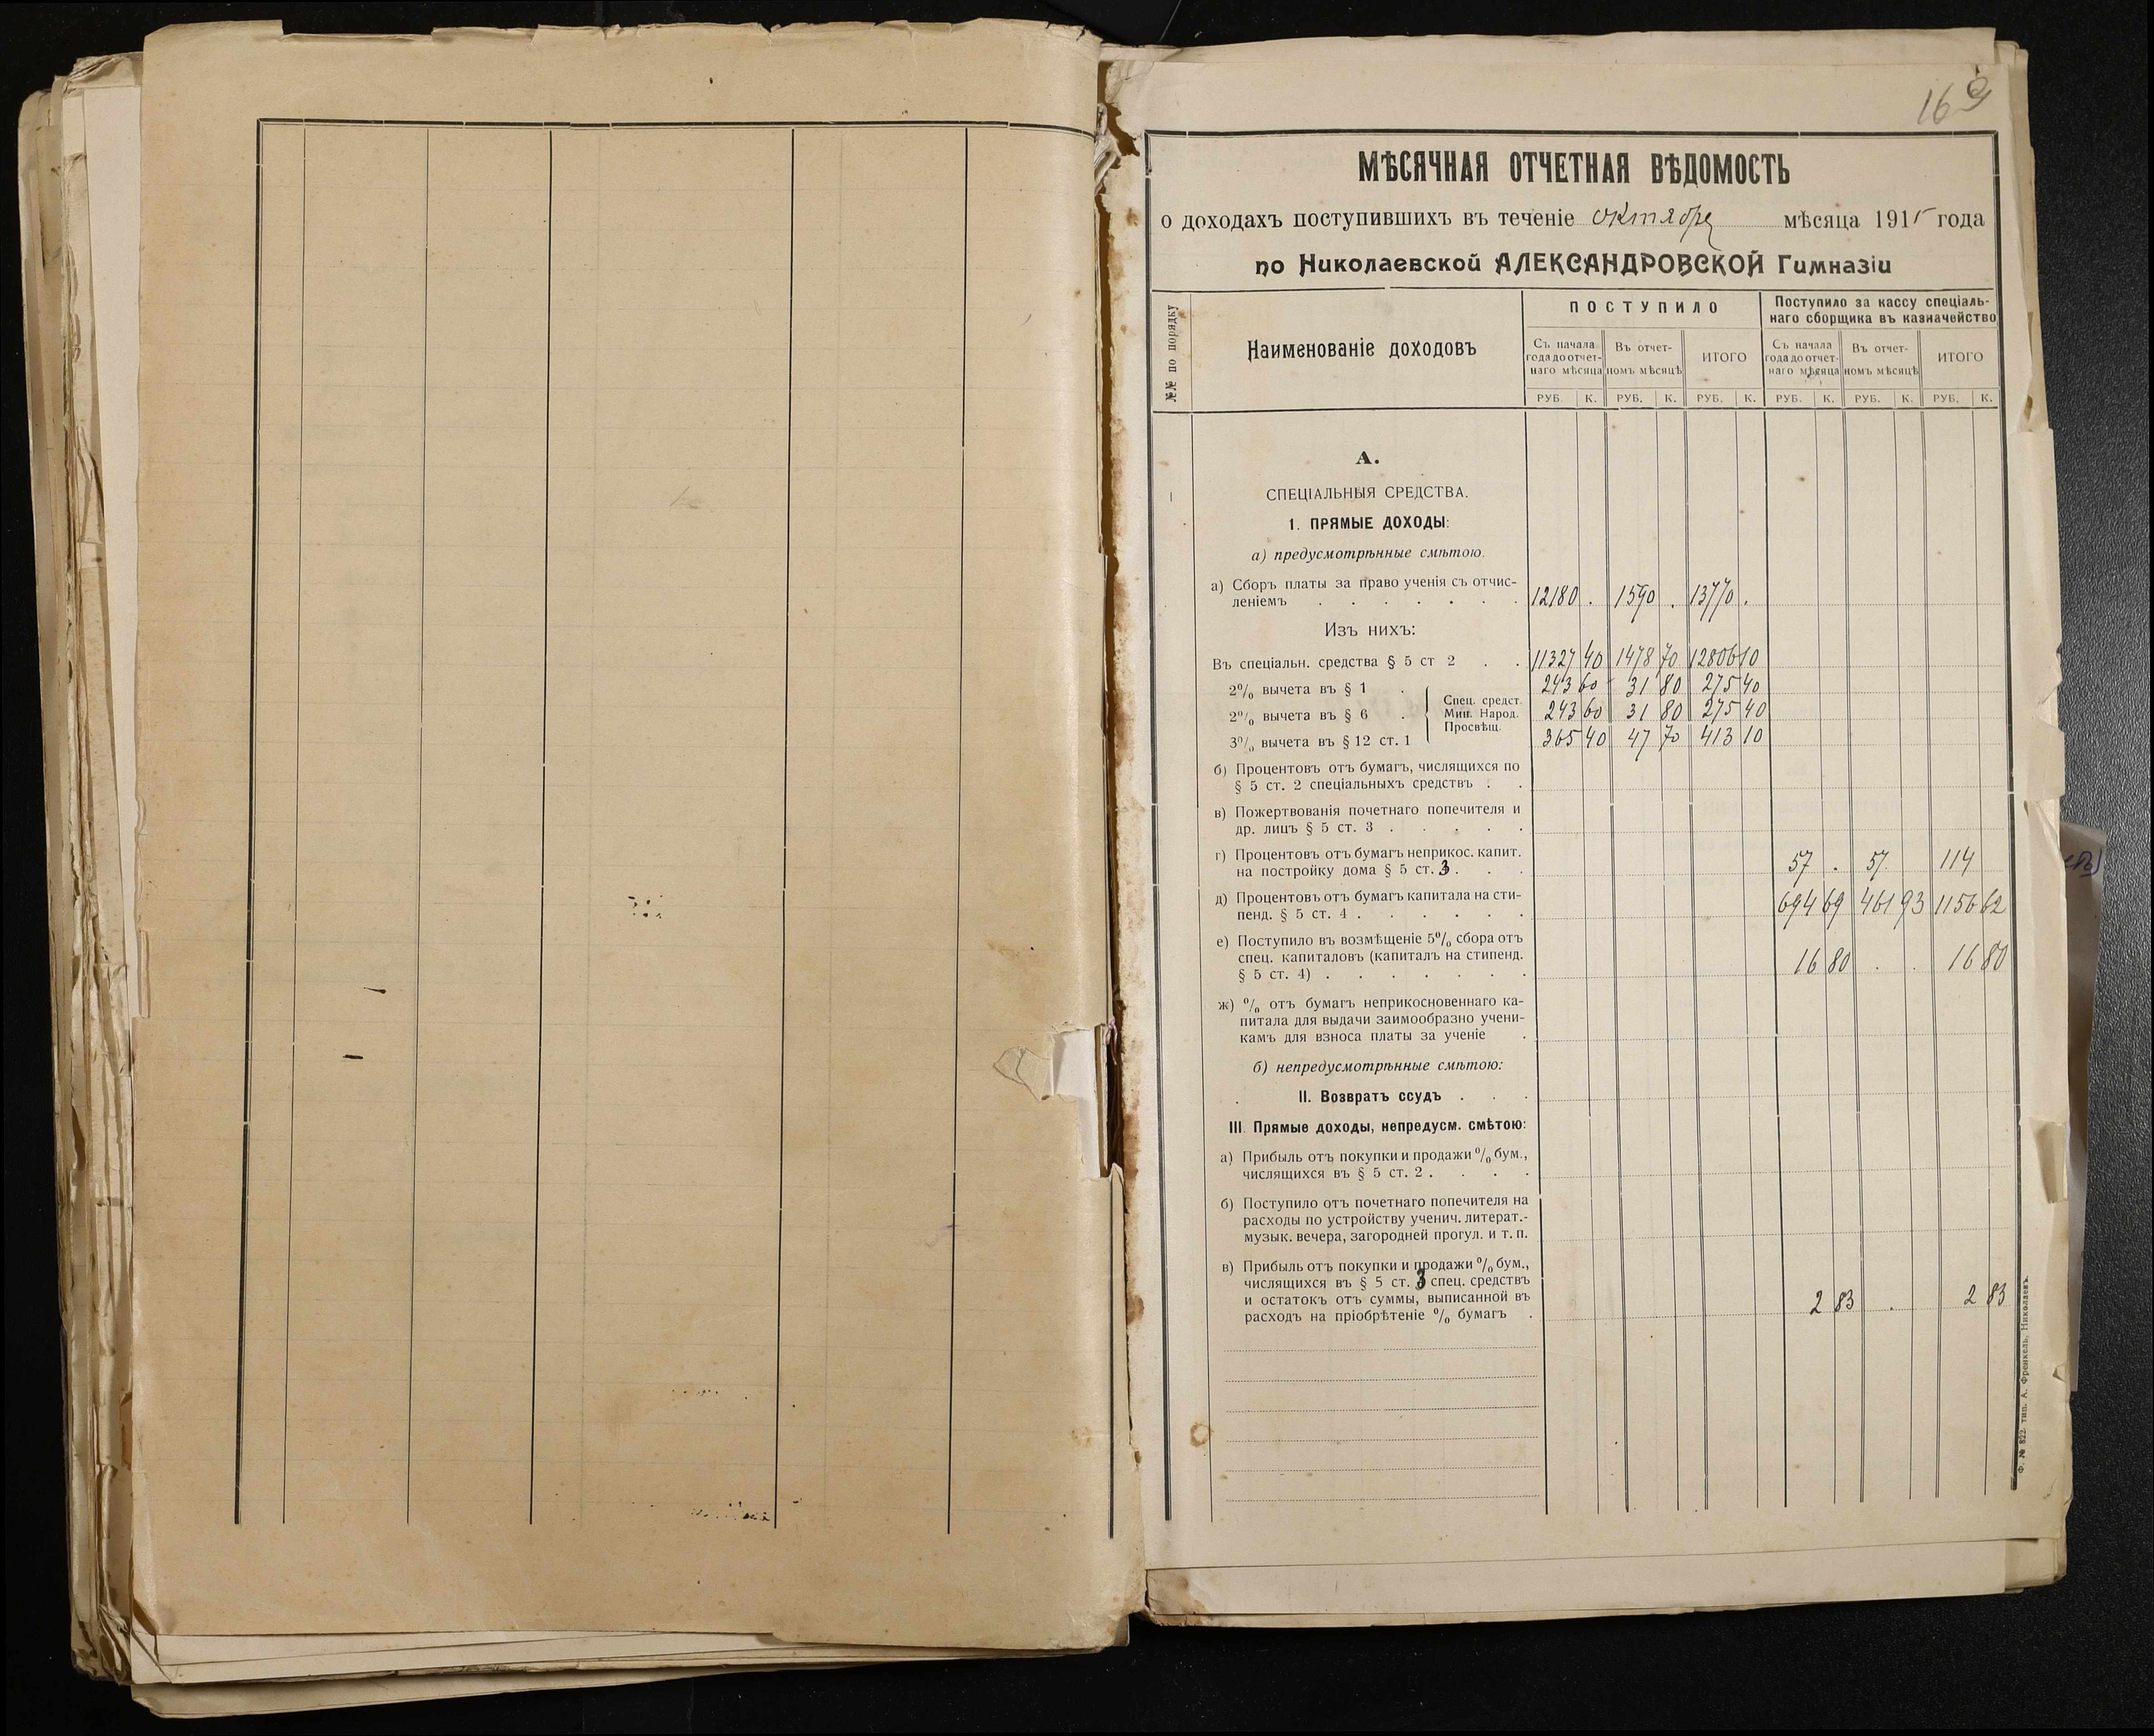 МѢСЯЧНАЯ ОТЧЕТНАЯ ВѢДОМОСТЬ
о доходахъ поступившихъ въ теченіе октября мѣсяца 1915 года
по Николаевской АЛЕКСАНДРОВСКОЙ Гимназіи
№№ по порядку
Наименованіе доходовъ
ПОСТУПИЛО
Поступило за кассу спеціаль-
наго сборщика въ казначейство
Съ начала
года до отчет-
наго мѣсяца
Въ отчет-
номъ мѣсяцѣ
ИТОГО
Съ начала
года до отчет-
наго мѣсяца
Въ отчет-
номъ мѣсяцѣ
ИТОГО
РУБ. К. РУБ. К. РУБ. К. РУБ. К. РУБ. К. РУБ. К.
А.
СПЕЦІАЛЬНЫЯ СРЕДСТВА.
1. ПРЯМЫЕ ДОХОДЫ:
а) предусмотрѣнные смѣтою.
а) Сборъ платы за право ученія съ отчис-
леніемъ . . . . . . . 12180 . 1590 . 13770 .
Изъ нихъ:
Въ спеціальн. средства § 5 ст 2 . . 11327 40 1478 70 12806 10
2% вычета въ § 1 . 243 60 31 80 275 40
2% вычета въ § 6 . 243 60 31 80 275 40
3% вычета въ § 12 ст. 1 365 40 47 70 413 10
Спец. средст.
Мин. Народ.
Просвѣщ.
б) Процентовъ отъ бумагъ, числящихся по
§ 5 ст. 2 спеціальныхъ средствъ . .
в) Пожертвованія почетнаго попечителя и
др. лицъ § 5 ст. 3 . . . . .
г) Процентовъ отъ бумагъ неприкос. капит.
на постройку дома § 5 ст. 3 . . . 57 . 57 . 114
д) Процентовъ отъ бумагъ капитала на сти-
пенд. § 5 ст. 4 . . . . . . 694 69 461 93 1156 62
е) Поступило въ возмѣщеніе 5% сбора отъ
спец. капиталовъ (капиталъ на стипенд.
§ 5 ст. 4) . . . . . . . 16 80 . . 16 80
ж) % отъ бумагъ неприкосновеннаго ка-
питала для выдачи заимообразно учени-
камъ для взноса платы за ученіе .
б) непредусмотрѣнные смѣтою:
II. Возвратъ ссудъ . . .
III. Прямые доходы, непредусм. смѣтою:
а) Прибыль отъ покупки и продажи % бум.,
числящихся въ § 5 ст. 2 . . . .
б) Поступило отъ почетнаго попечителя на
расходы по устройству ученич. литерат.-
музык. вечера, загородней прогул. и т. п.
в) Прибыль отъ покупки и продажи % бум.,
числящихся въ § 5 ст. 3 спец. средствъ
и остатокъ отъ суммы, выписанной въ
расходъ на пріобрѣтеніе % бумагъ . 2 83 . 2 83
Ф. № 822. тип. А. Френкель. Николаевъ.